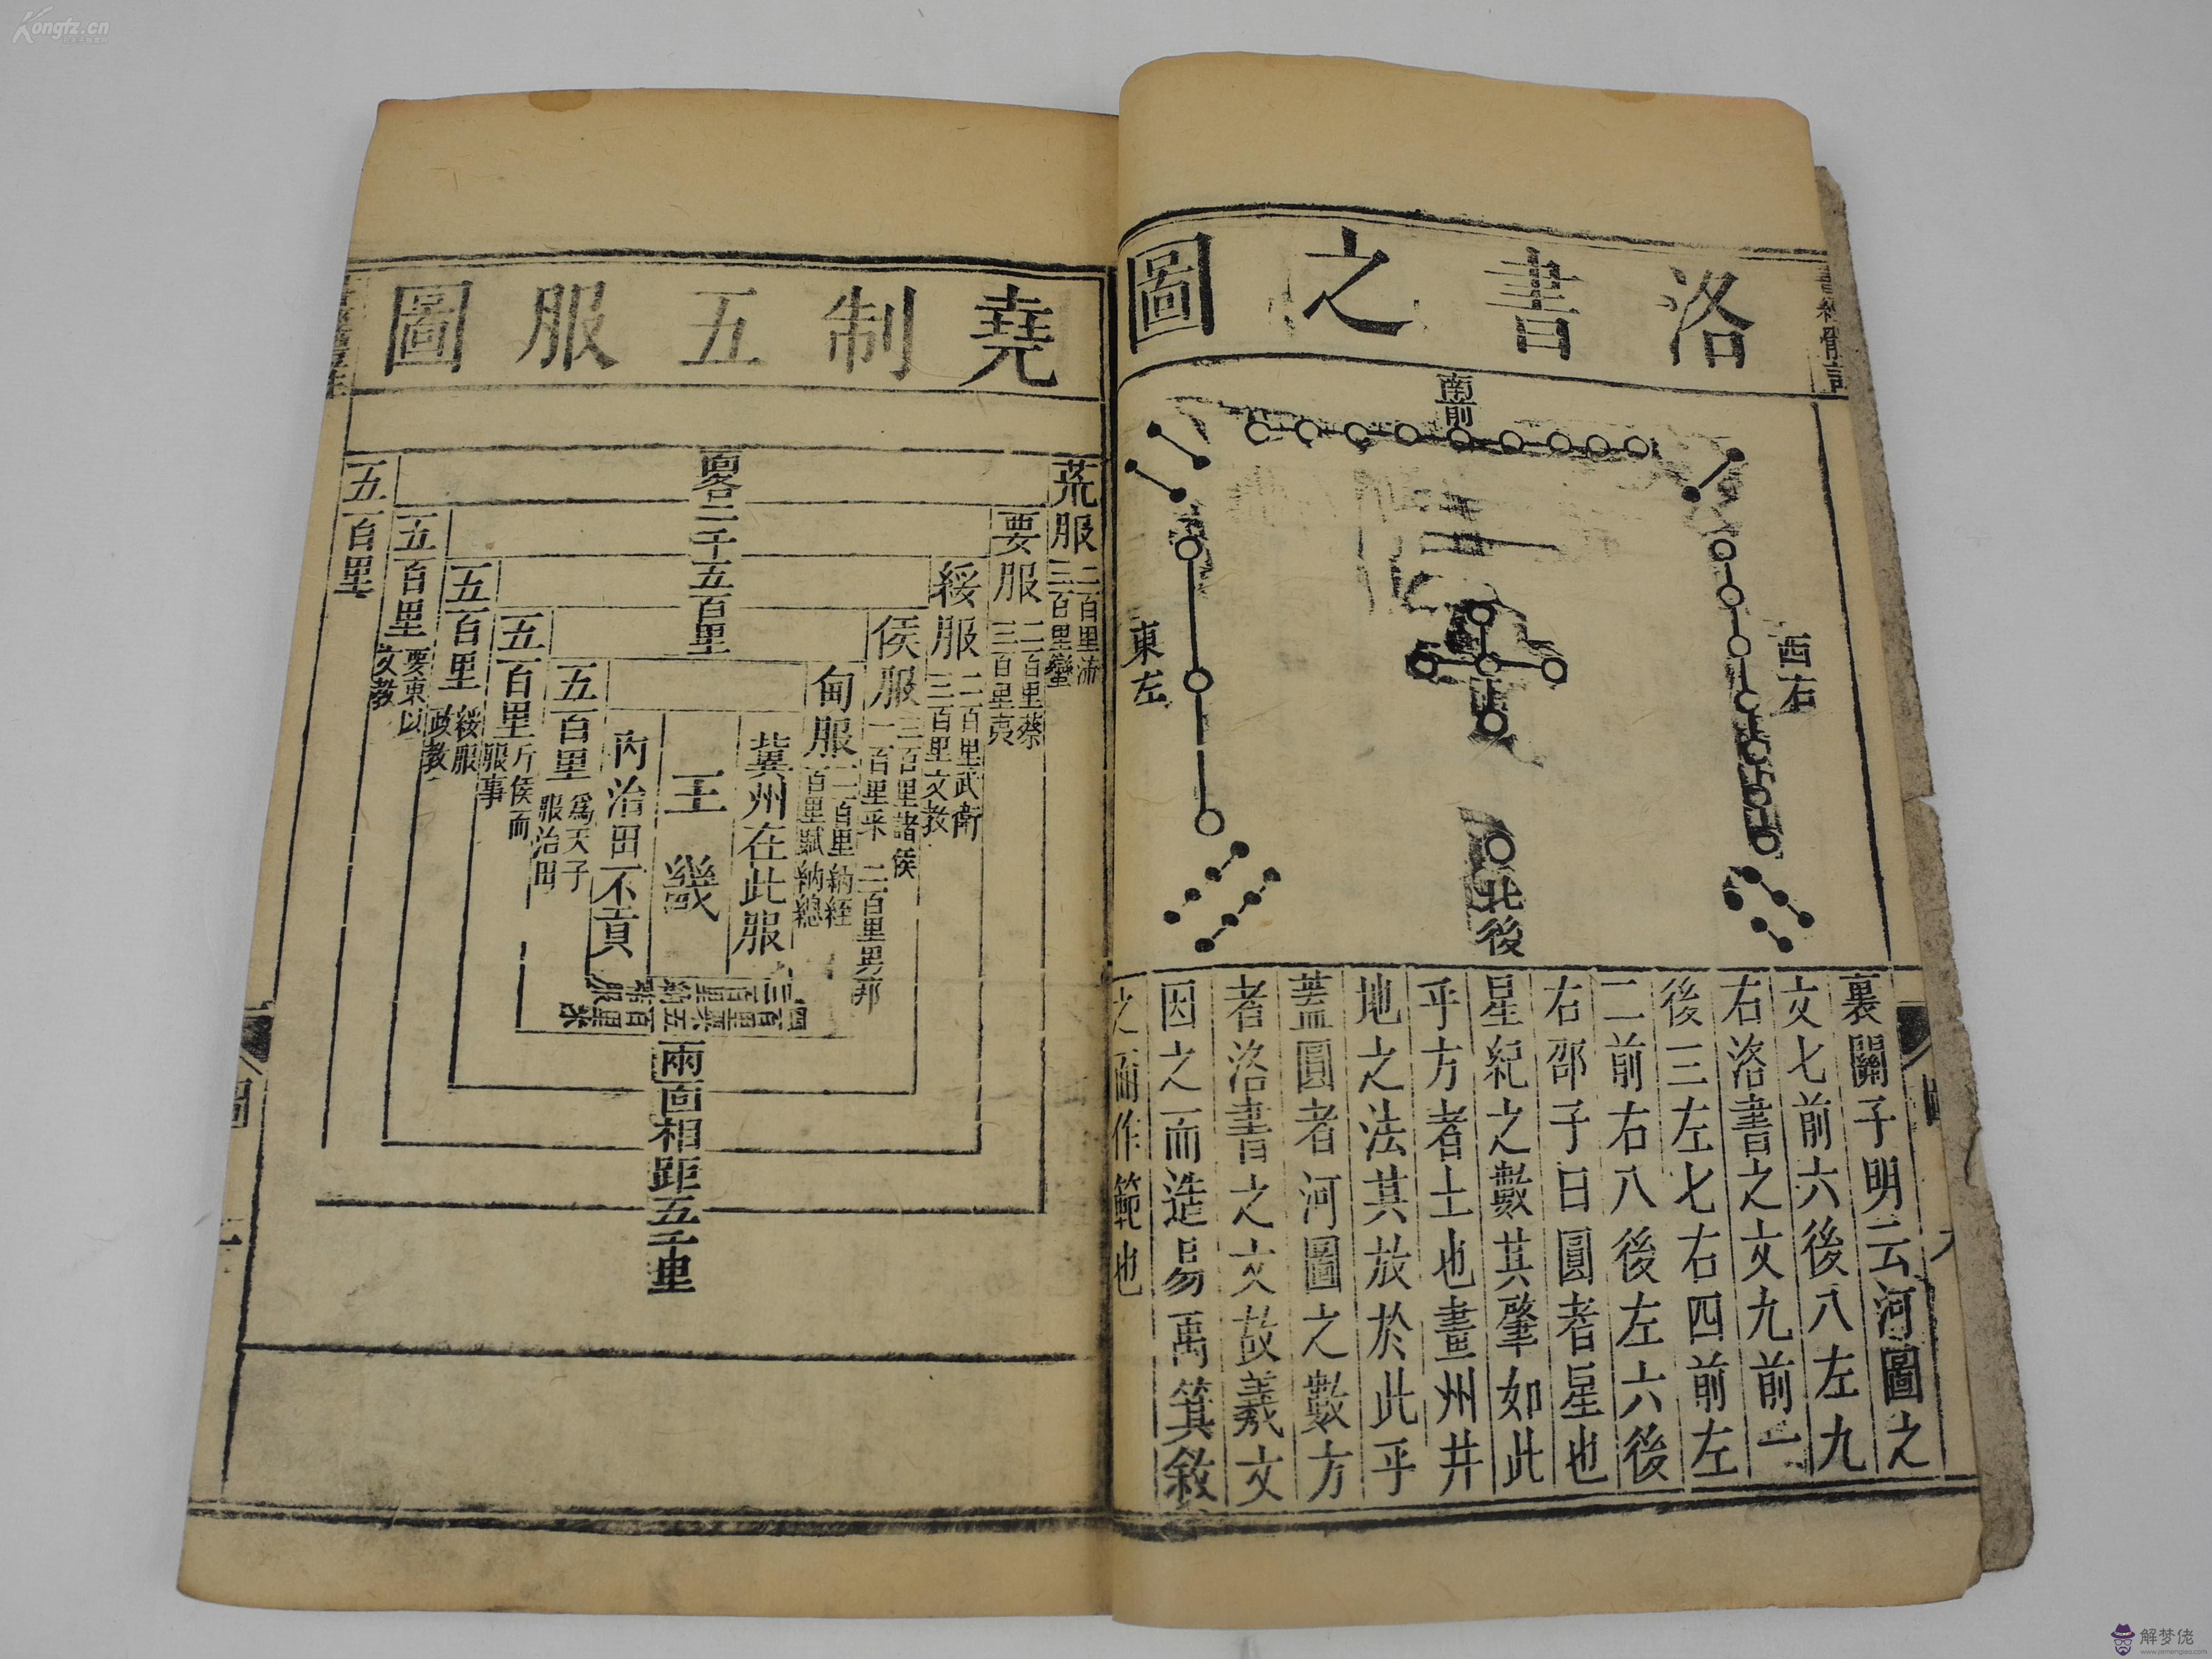 洛書之圖
南前
西右
東左
北後
裏關子明云河圖之
文七前六後八左九
右洛書之文九前一
後三左七右四前左
二前右八後左六後
右邵子曰圓者星也
星紀之數其肇如此
乎方者土也畫州井
地之法其放於此乎
蓋圓者河圖之數方
者洛書之文故羲文
因之而造易禹箕敘
之而作範也
堯制五服圖
面各二千五百里
荒服
二百里流
三百里蠻
要服
二百里蔡
三百里夷
綏服
二百里武衛
三百里文教
侯服
三百里諸侯
一百里采 二百里男邦
甸服
二百里納銍
百里賦納總
冀州在此服
王畿
內治田不貢
五百里
為天子
服治田
五百里
斥侯而
服事
五百里
綏服
政教
五百里
要束以
文教
五百里
三百里納秸服
四百里粟五百里米
兩面相距五千里
圖
Kongfz.cn
解梦佬
www.jiemenglao.com